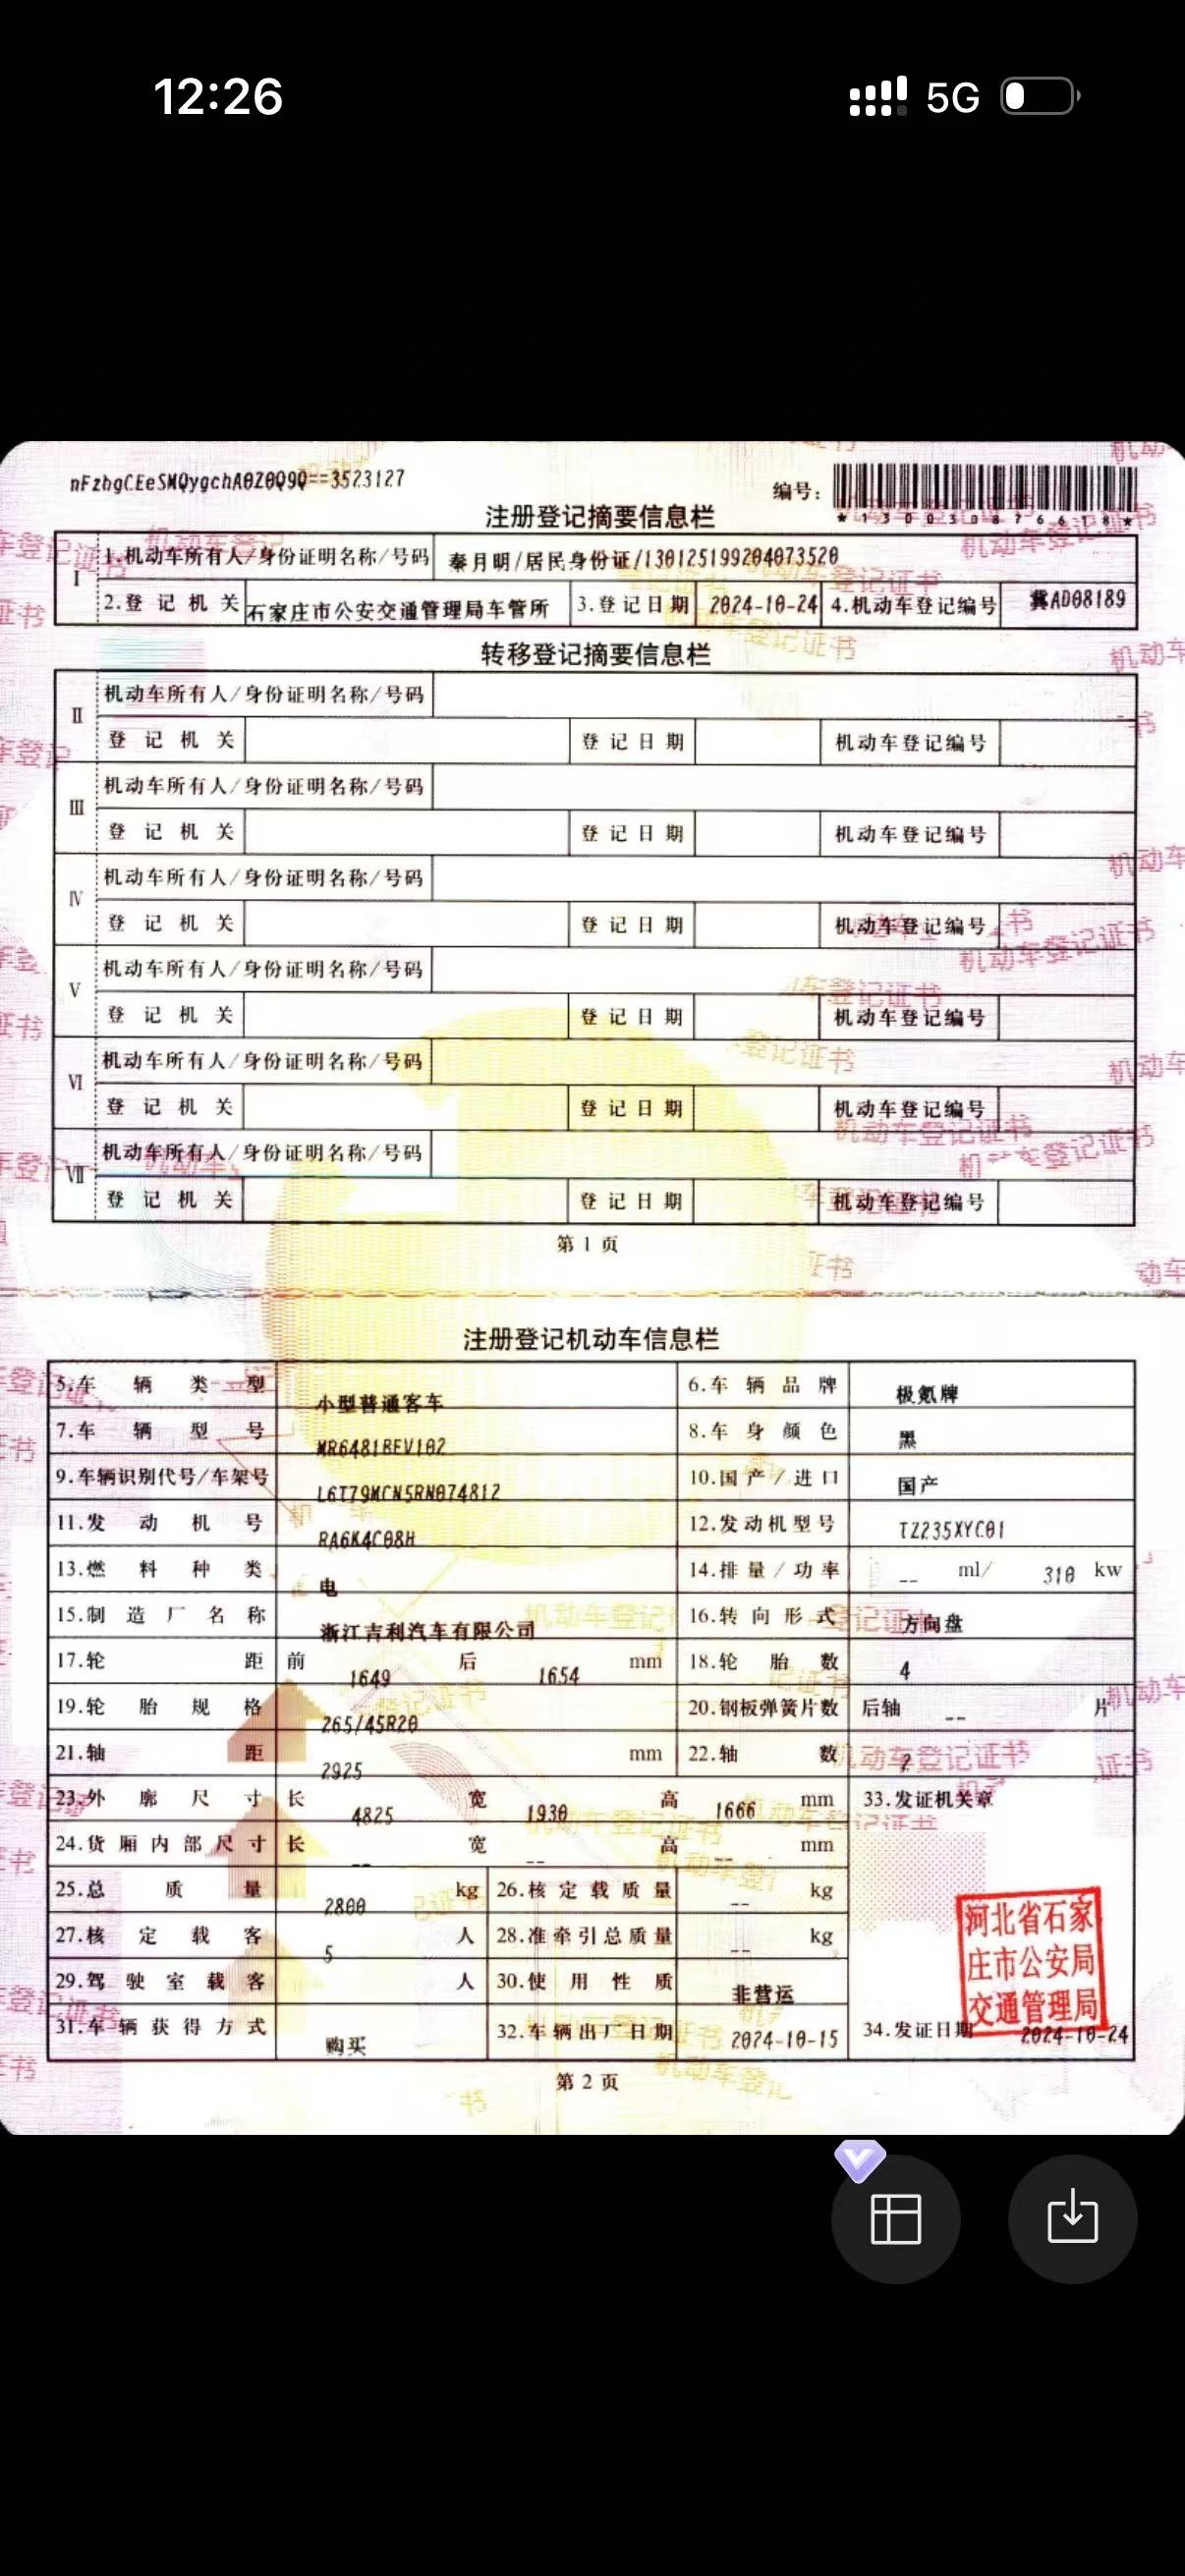 12:26 5G
nFzhgCEeSMQygchA0Z0Q9Q==3523127
编号: *130030876618*
注册登记摘要信息栏
I 1.机动车所有人/身份证明名称/号码 秦月明/居民身份证/130125199204073520
2.登记机关 石家庄市公安交通管理局车管所 3.登记日期 2024-10-24 4.机动车登记编号 冀AD08189
转移登记摘要信息栏
II 机动车所有人/身份证明名称/号码
登记机关 登记日期 机动车登记编号
III 机动车所有人/身份证明名称/号码
登记机关 登记日期 机动车登记编号
IV 机动车所有人/身份证明名称/号码
登记机关 登记日期 机动车登记编号
V 机动车所有人/身份证明名称/号码
登记机关 登记日期 机动车登记编号
VI 机动车所有人/身份证明名称/号码
登记机关 登记日期 机动车登记编号
VII 机动车所有人/身份证明名称/号码
登记机关 登记日期 机动车登记编号
第 1 页
注册登记机动车信息栏
5.车辆类型 小型普通客车 6.车辆品牌 极氪牌
7.车辆型号 MR6481BEV102 8.车身颜色 黑
9.车辆识别代号/车架号 L6T79MCN5RN074812 10.国产/进口 国产
11.发动机号 RA6K4C08H 12.发动机型号 TZ235XYC01
13.燃料种类 电 14.排量/功率 -- ml/ 310 kw
15.制造厂名称 浙江吉利汽车有限公司 16.转向形式 方向盘
17.轮距 前 1649 后 1654 mm 18.轮胎数 4
19.轮胎规格 265/45R20 20.钢板弹簧片数 后轴 -- 片
21.轴距 2925 mm 22.轴数 2
23.外廓尺寸 长 4825 宽 1930 高 1666 mm 33.发证机关章
24.货厢内部尺寸 长 -- 宽 -- 高 -- mm
25.总质量 2800 kg 26.核定载质量 -- kg
27.核定载客 5 人 28.准牵引总质量 -- kg
29.驾驶室载客 人 30.使用性质 非营运
31.车辆获得方式 购买 32.车辆出厂日期 2024-10-15 34.发证日期 2024-10-24
河北省石家
庄市公安局
交通管理局
第 2 页